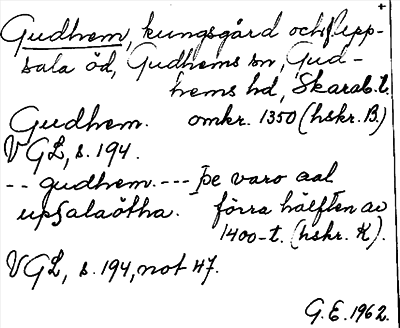 Gudhem, kungsgård och Upp-
sala öd, Gudhems sn, Gud-
hems hd, Skarab. l.
Gudhem. omkr. 1350 (hskr. B)
VGL, s. 194.
-- gudhem. --- þe varo aal
upsalaötha. förra hälften av
1400-t. (hskr. K).
VGL, s. 194, not 47.
G. E. 1962.